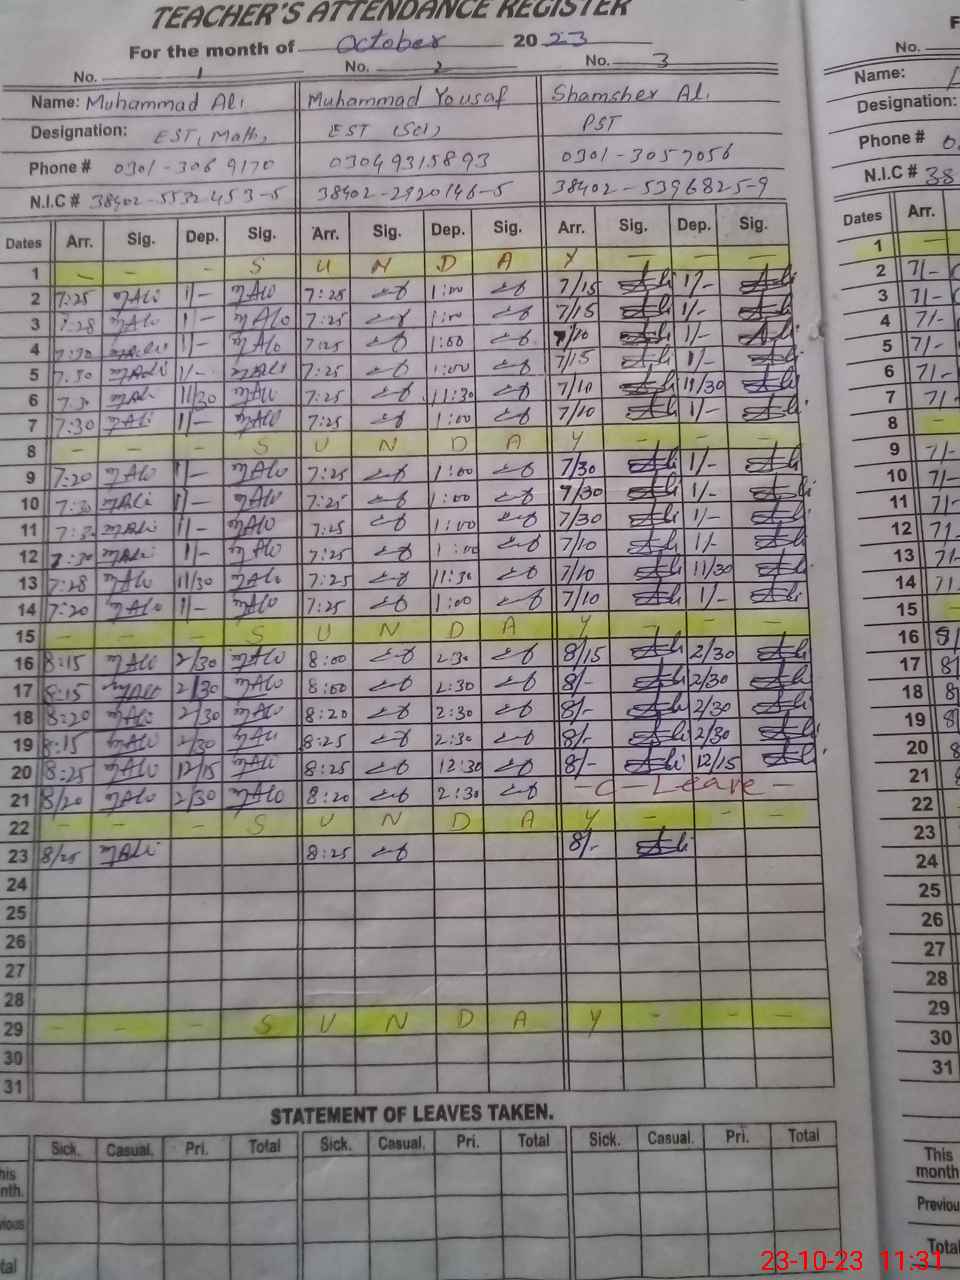 TEACHER'S ATTENDANCE REGISTER
For the month of October 2023
No. 1 No. 2 No. 3
Name: Muhammad Ali Muhammad Yousaf Shamsher Ali
Designation: EST, Math, EST (Sci) PST
Phone # 0301-3069170 03049315893 0301-3057056
N.I.C # 38402-5532453-5 38402-2920146-5 38402-5396825-9
Dates Arr. Sig. Dep. Sig. Arr. Sig. Dep. Sig. Arr. Sig. Dep. Sig.
1 - - - S U N D A Y - - -
2 7:25 MAli 1/- MAli 7:25 1:00 7/15 Ali 1/- Ali
3 7:28 MAli 1/- MAli 7:25 1:00 7/15 Ali 1/- Ali
4 7:30 MAli 1/- MAli 7:25 1:00 7/10 Ali 1/- Ali
5 7:30 MAli 1/- MAli 7:25 1:00 7/15 Ali 1/- Ali
6 7:30 MAli 11/30 MAli 7:25 11:30 7/10 Ali 11/30 Ali
7 7:30 MAli 1/- MAli 7:25 1:00 7/10 Ali 1/- Ali
8 - - - S U N D A Y - - -
9 7:20 MAli 1/- MAli 7:25 1:00 7/30 Ali 1/- Ali
10 7:30 MAli 1/- MAli 7:25 1:00 7/30 Ali 1/- Ali
11 7:30 MAli 1/- MAli 7:25 1:00 7/30 Ali 1/- Ali
12 7:30 MAli 1/- MAli 7:25 1:00 7/10 Ali 1/- Ali
13 7:28 MAli 11/30 MAli 7:25 11:30 7/10 Ali 11/30 Ali
14 7:20 MAli 1/- MAli 7:25 1:00 7/10 Ali 1/- Ali
15 - - - S U N D A Y - - -
16 8:15 MAli 2/30 MAli 8:00 2:30 8/15 Ali 2/30 Ali
17 8:15 MAli 2/30 MAli 8:00 2:30 8/- Ali 2/30 Ali
18 8:20 MAli 2/30 MAli 8:20 2:30 8/- Ali 2/30 Ali
19 8:15 MAli 2/30 MAli 8:25 2:30 8/- Ali 2/30 Ali
20 8:25 MAli 12/15 MAli 8:25 12:30 8/- Ali 12/15 Ali
21 8/20 MAli 2/30 MAli 8:20 2:30 -C-Leave-
22 - - - S U N D A Y - - -
23 8/25 MAli 8:25 8/- Ali
24
25
26
27
28
29 - - - S U N D A Y - - -
30
31
STATEMENT OF LEAVES TAKEN.
Sick. Casual. Pri. Total Sick. Casual. Pri. Total Sick. Casual. Pri. Total
No.
Name:
Designation:
Phone # 0
N.I.C # 38
Dates Arr.
1 -
2 7/-
3 7/-
4 7/-
5 7/-
6 7/-
7 7/-
8 -
9 7/-
10 7/-
11 7/-
12 7/-
13 7/-
14 7/-
15 -
16 8/
17 8/
18 8
19 8
20 8
21 8
22
23
24
25
26
27
28
29
30
31
This month
Previou
Total
23-10-23 11:31